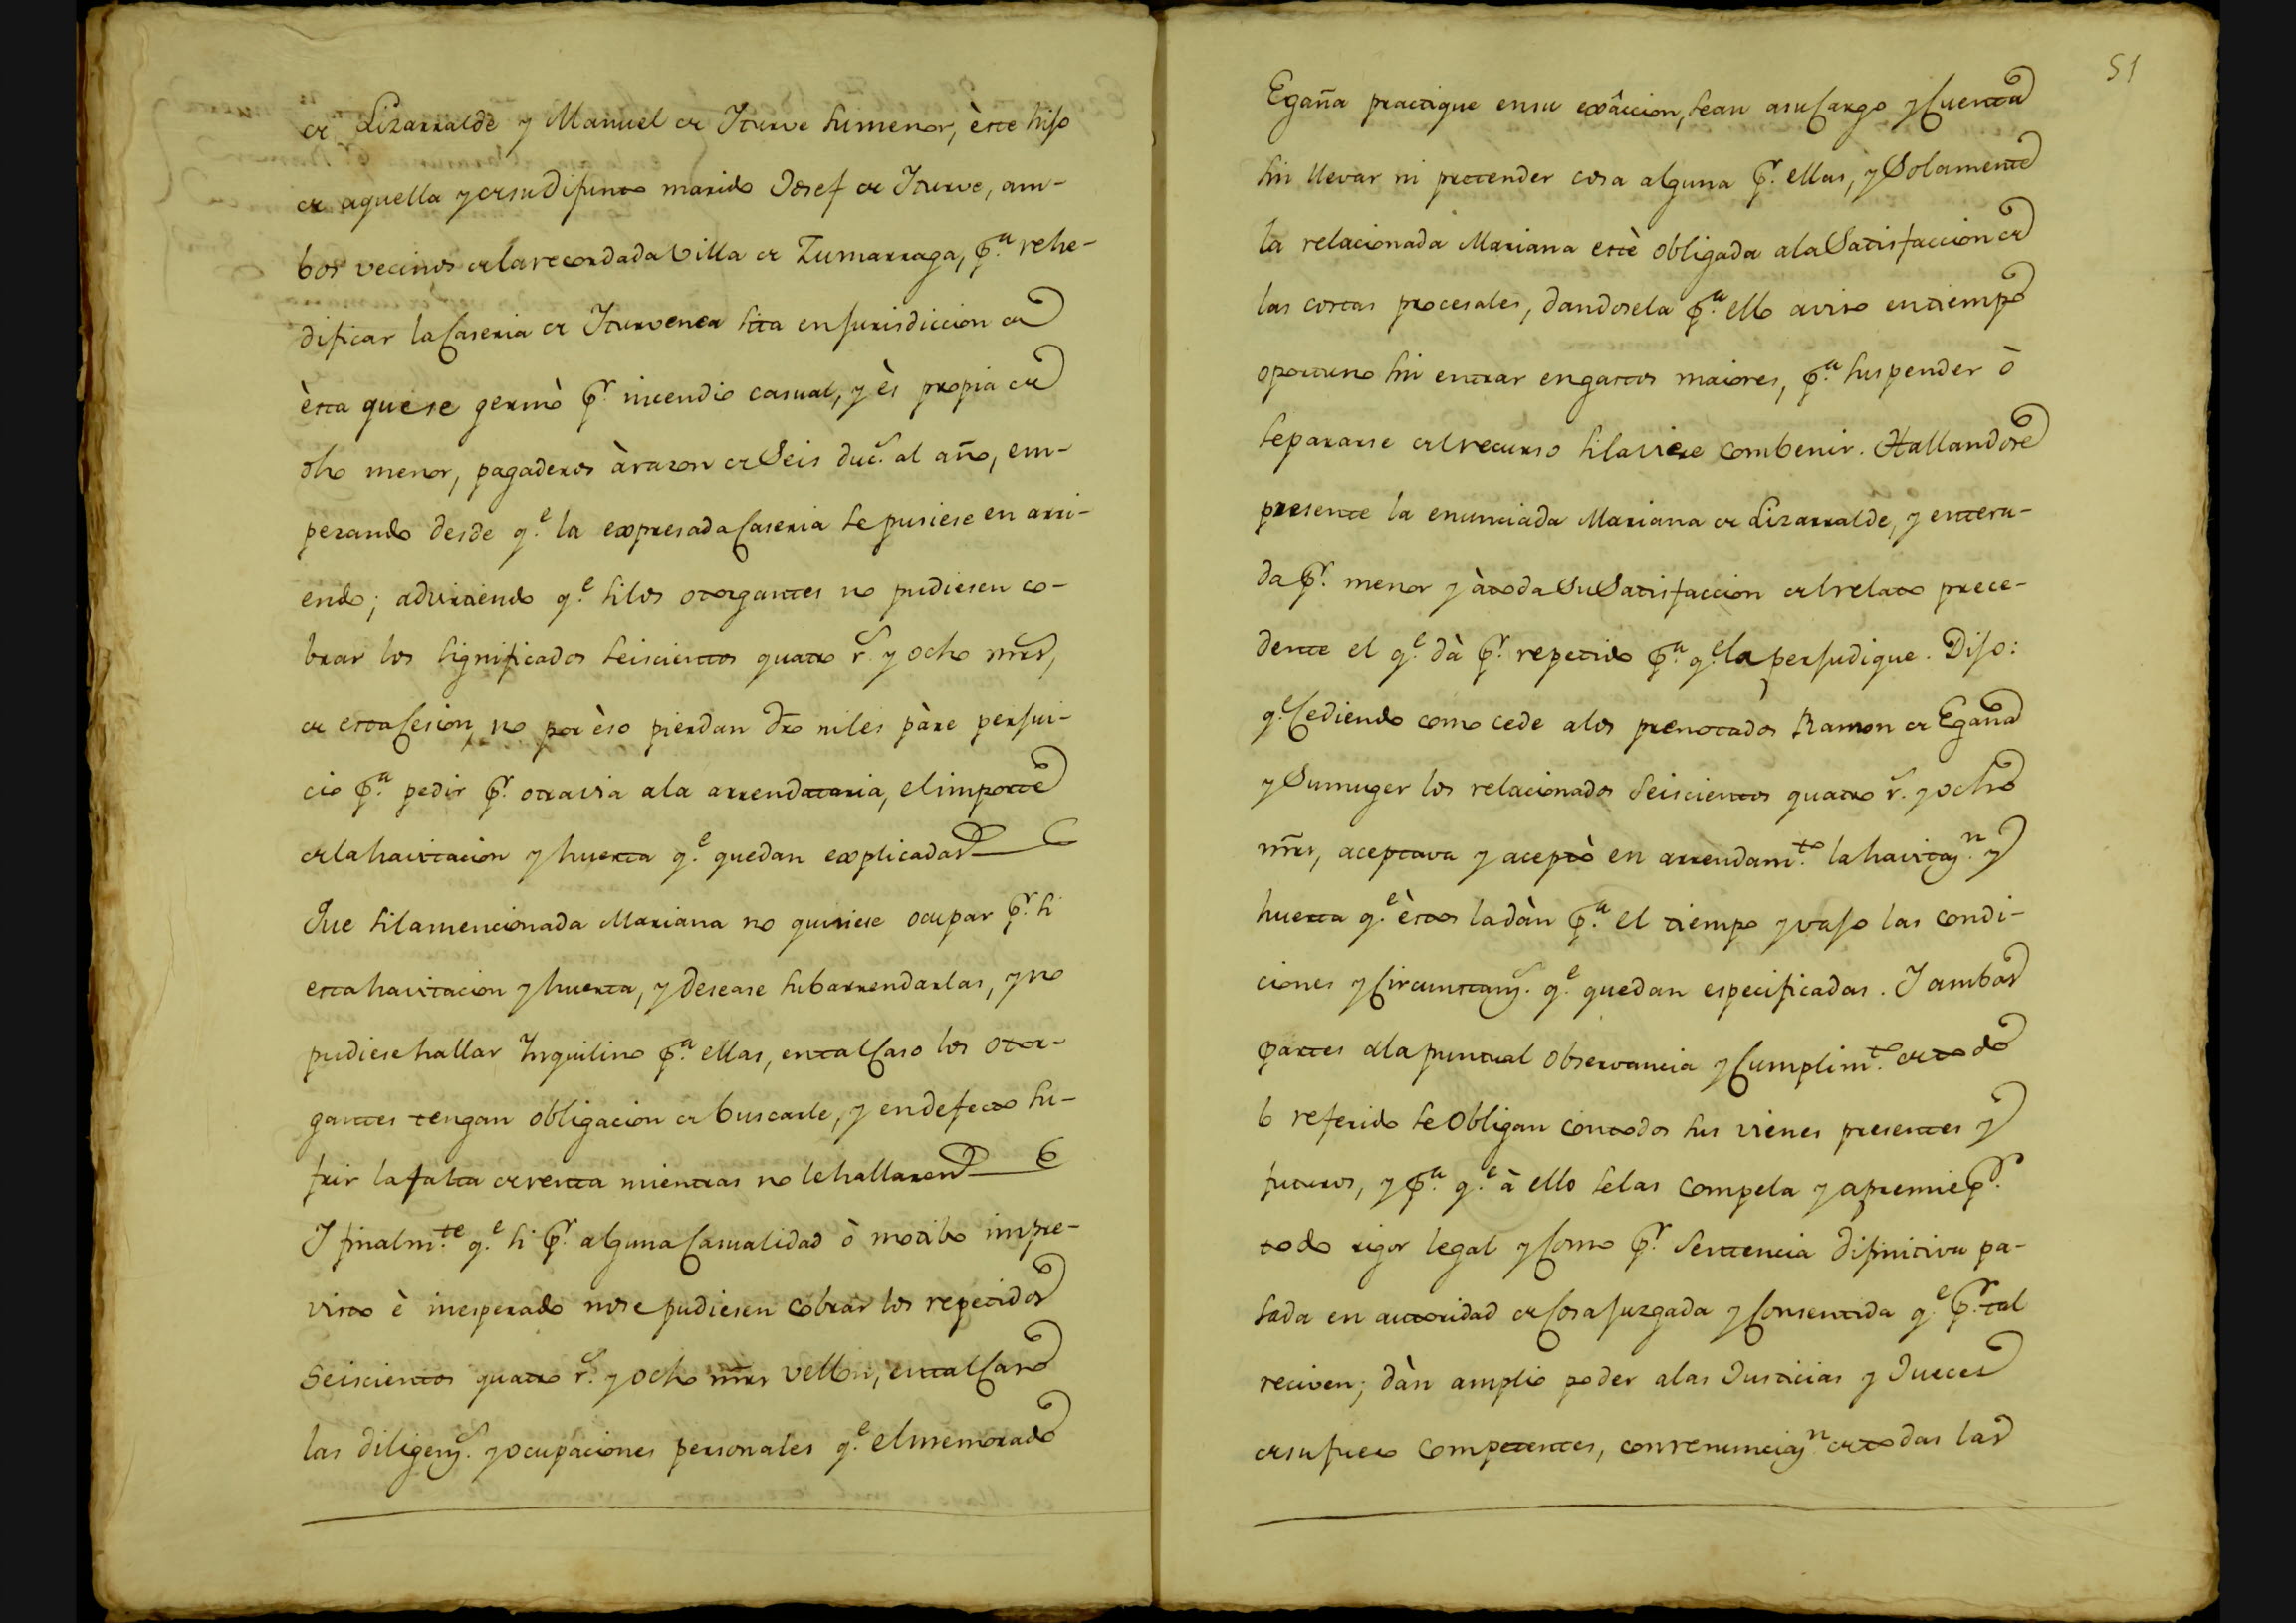 de Lizarralde y Manuel de Iturve su menor, èste hijo
de aquella y de su difunto marido Josef de Iturve, am-
bos vecinos de la recordada Villa de Zumarraga, pª. rehe-
dificar la Caseria de Iturvenea sita en jurisdiccion de
èsta que se germò pr. incendio casual, y ès propia de
dho menor, pagaderos à razon de Seis ducs. al año, em-
pezando desde qe. la expresada Caseria se pusiese en arri-
endo; advirtiendo qe. si los otorgantes no pudiesen co-
brar los significados seiscientos quatro rs. y ocho mrs,
de esta Cesion, no por èso pierdan dro ni les pàre perjui-
cio pª. pedir pr. otra via a la arrendataria, el importe
de la havitacion y huerta qe. quedan explicadas
Que si la mencionada Mariana no quisiese ocupar pr. si
esta havitacion y huerta, y desease subarrendarlas, y no
pudiese hallar Inquilino pª. ellas, en tal Caso los otor-
gantes tengan obligacion de buscarle, y en defecto su-
frir la falta de renta mientras no le hallaren
I finalmte. qe. si pr. alguna Casualidad ò motibo impre-
visto è inesperado no se pudiesen cobrar los repetidos
Seiscientos quatro rs. y ocho mrs vellon, en tal Caso
las diligencs. y ocupaciones personales qe. el memorado
51
Egaña practique en su exâccion, sean a su Cargo y Cuenta
sin llevar ni pretender cosa alguna pr. ellas, y Solamente
la relacionada Mariana estè obligada a la Satisfaccion de
las costas procesales, dandosela pª. ello aviso en tiempo
oportuno sin entrar en gastos maiores, pª. suspender ò
separarse del recurso si la viese combenir. Hallandose
presente la enunciada Mariana de Lizarralde, y entera-
da pr. menor y à toda Su Satisfaccion del relato prece-
dente el qe. dà pr. repetido pª. qe. la perjudique. Dijo:
qe. Cediendo como cede a los prenotados Ramon de Egaña
y Su muger los relacionados Seiscientos quatro rs. y ocho
mrs, aceptava y aceptò en arrendamto. la havitacn. y
huerta qe. èstos la dàn pª. el tiempo y vajo las condi-
ciones y Circunstancs. qe. quedan especificadas. I ambas
partes a la puntual observancia y Cumplimto. de todo
lo referido se obligan con todos sus vienes presentes y
futuros, y pª. qe. à ello se las compela y apremie pr.
todo rigor legal y Como pr. Sentencia difinitiva pa-
sada en autoridad de Cosa juzgada y Consentida qe. pr. tal
reciven; dàn amplio poder a las Justicias y Jueces
de su fuero competentes, con renunciacn. de todas las